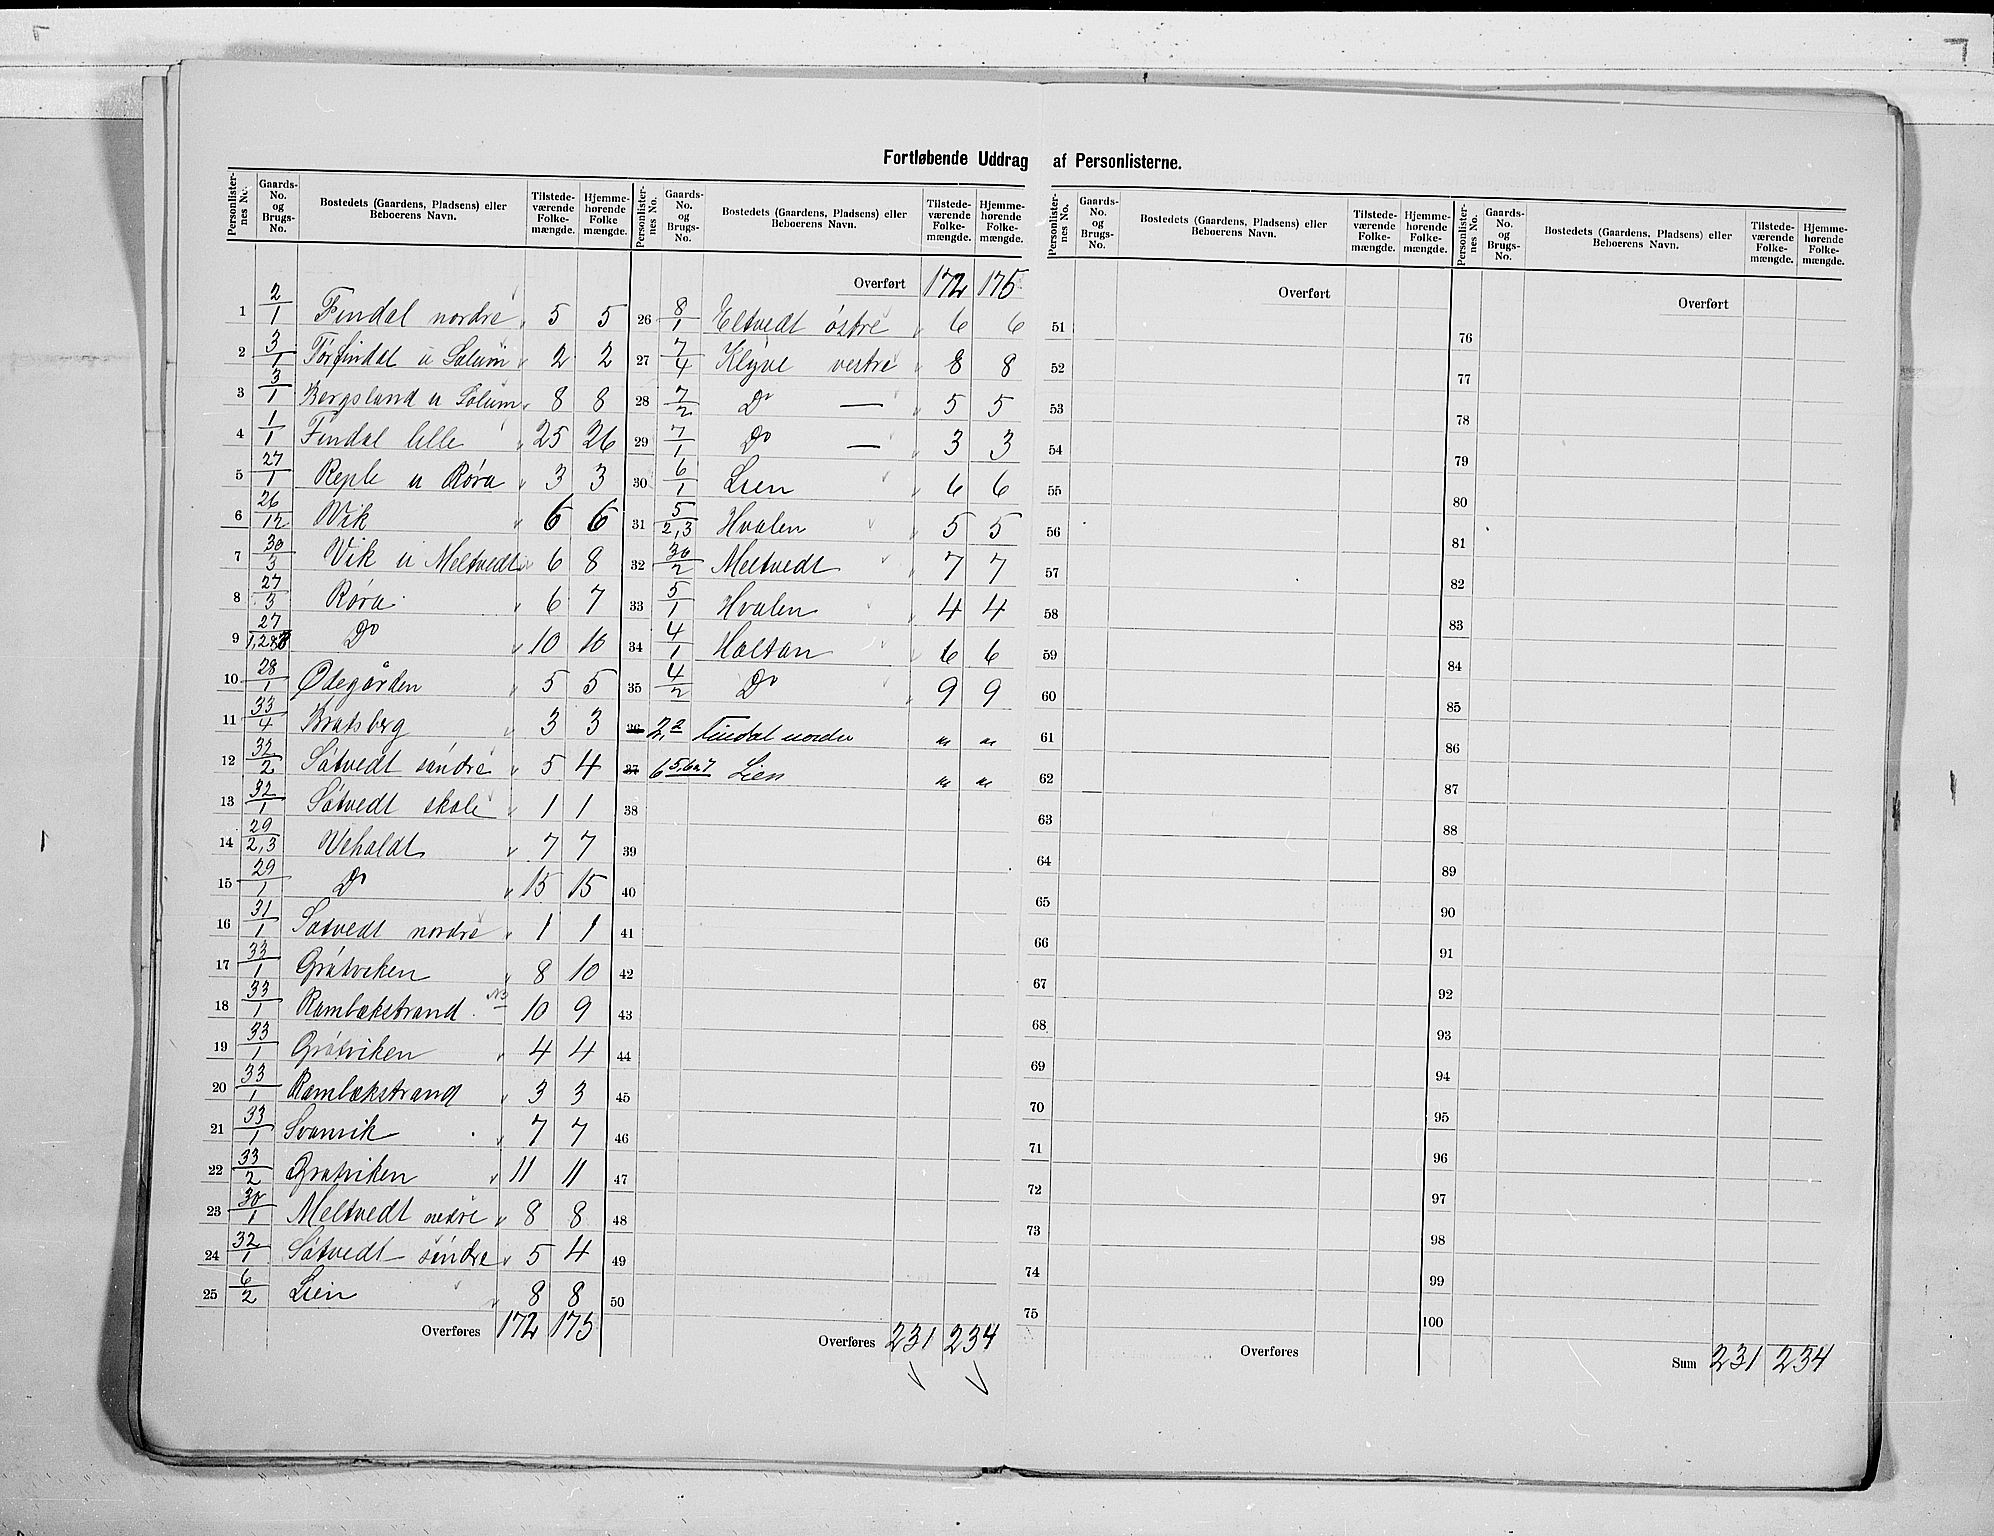 Fortløbende Uddrag af Personlisterne.
Personlister-nes No. | Gaards-No. og Brugs-No. | Bostedets (Gaardens, Pladsens) eller Beboerens Navn. | Tilstede-værende Folke-mængde. | Hjemme-hørende Folke mængde.
1 2/1 Findal nordre 5 5
2 3/1 Torfindal u Solum 2 2
3 3/1 Bergsland u Solum 8 8
4 1/1 Findal lille 25 26
5 27/1 Reple u Røra 3 3
6 26/12 Vik 6 6
7 30/3 Vik u Meltvedt 6 8
8 27/3 Røra 6 7
9 27/ Do 10 10
10 28/1 Ødegården 5 5
11 33/4 Bratsberg 3 3
12 32/2 Søtvedt søndre 5 4
13 32/1 Søtvedt skole 1 1
14 29/2,3 Veholdt 7 7
15 29/1 Do 15 15
16 31/1 Søtvedt nordre 1 1
17 33/1 Gråtviken 8 10
18 33/1 Rambækstrand 10 9
19 33/1 Gråtviken 4 4
20 33/1 Rambækstrand 3 3
21 33/1 Svanvik 7 7
22 33/2 Gråtviken 11 11
23 30/1 Meltvedt nedre 8 8
24 32/1 Søtvedt søndre 5 4
25 6/2 Lien 8 8
Overføres 172 175
Personlister-nes No. | Gaards-No. og Brugs-No. | Bostedets (Gaardens, Pladsens) eller Beboerens Navn. | Tilstede-værende Folke-mængde. | Hjemme-hørende Folke-mængde.
Overført 172 175
26 8/1 Eltvedt østre 6 6
27 7/4 Klyve vestre 8 8
28 7/2 Do — 5 5
29 7/1 Do — 3 3
30 6/1 Lien 6 6
31 5/2,3 Hvalen 5 5
32 30/2 Meltvedt 7 7
33 5/1 Hvalen 4 4
34 4/1 Holtan 6 6
35 4/2 Do 9 9
36 2,2 Findal nordre " "
37 6 5,6 o 7 Lien " "
38
39
40
41
42
43
44
45
46
47
48
49
50
Overføres 231 234
Personlister-nes No. | Gaards-No. og Brugs-No. | Bostedets (Gaardens, Pladsens) eller Beboerens Navn. | Tilstede-værende Folke-mængde. | Hjemme-hørende Folke-mængde.
Overført
51
52
53
54
55
56
57
58
59
60
61
62
63
64
65
66
67
68
69
70
71
72
73
74
75
Overføres
Personlister-nes No. | Gaards-No. og Brugs-No. | Bostedets (Gaardens, Pladsens) eller Beboerens Navn. | Tilstede-værende Folke-mængde. | Hjemme-hørende Folke-mængde.
Overført
76
77
78
79
80
81
82
83
84
85
86
87
88
89
90
91
92
93
94
95
96
97
98
99
100
Sum 231 234